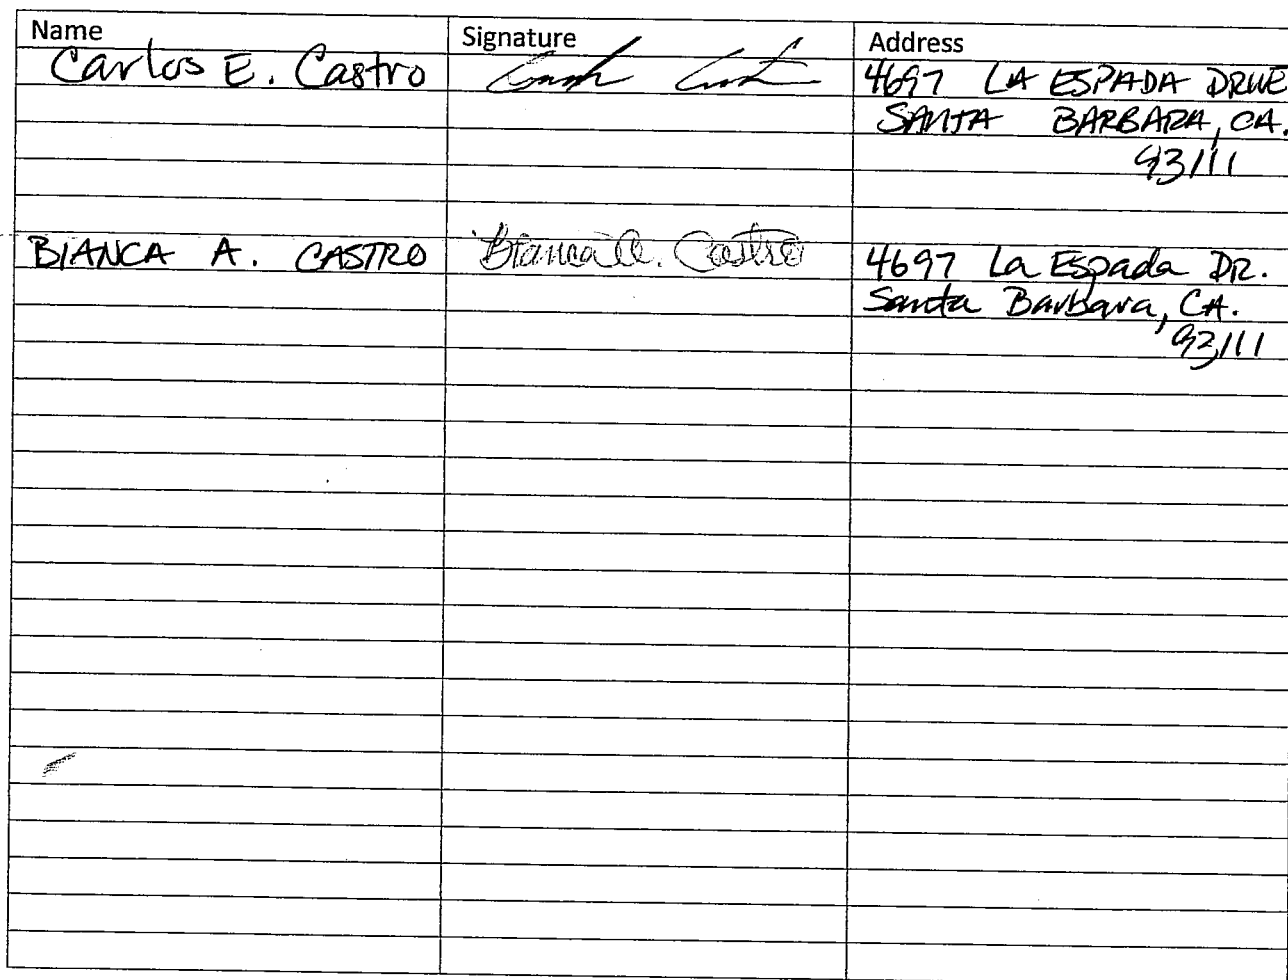 Name Signature Address
Carlos E. Castro 4697 LA ESPADA DRIVE
SANTA BARBARA, CA.
93111
BIANCA A. CASTRO Bianca A. Castro 4697 La Espada DR.
Santa Barbara, CA.
93111